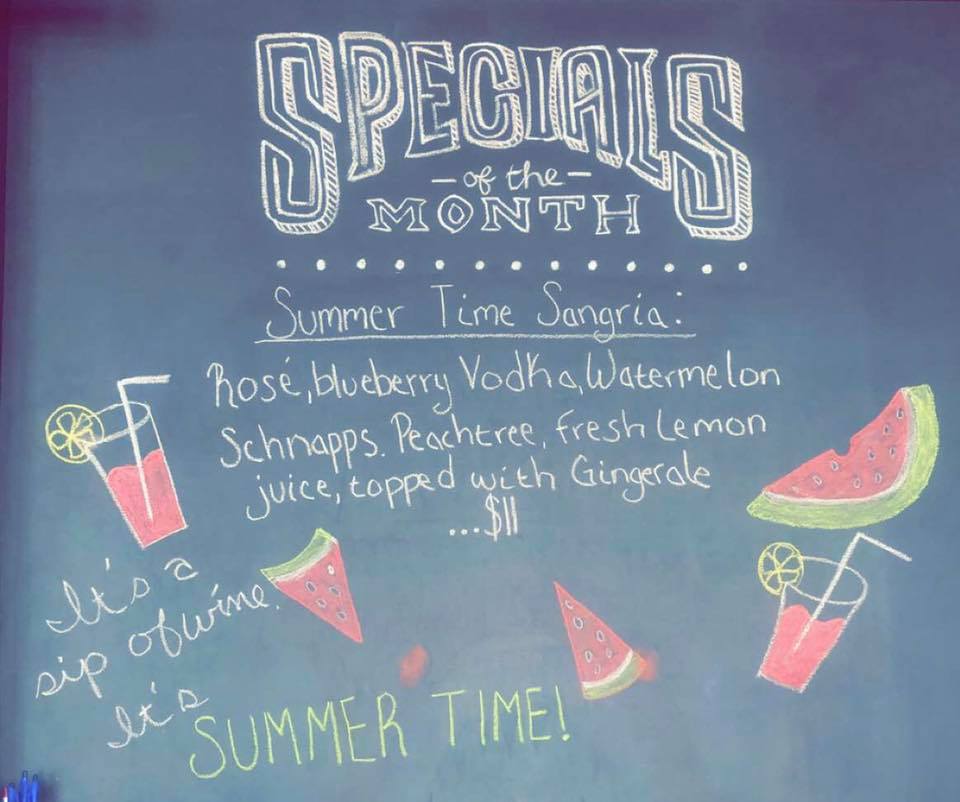 SPECIALS
- of the -
MONTH
Summer Time Sangria:
Rosé, blueberry Vodka, Watermelon
Schnapps. Peachtree, fresh Lemon
juice, topped with Gingerale
...$11
It's a
sip of wine.
It's
SUMMER TIME!